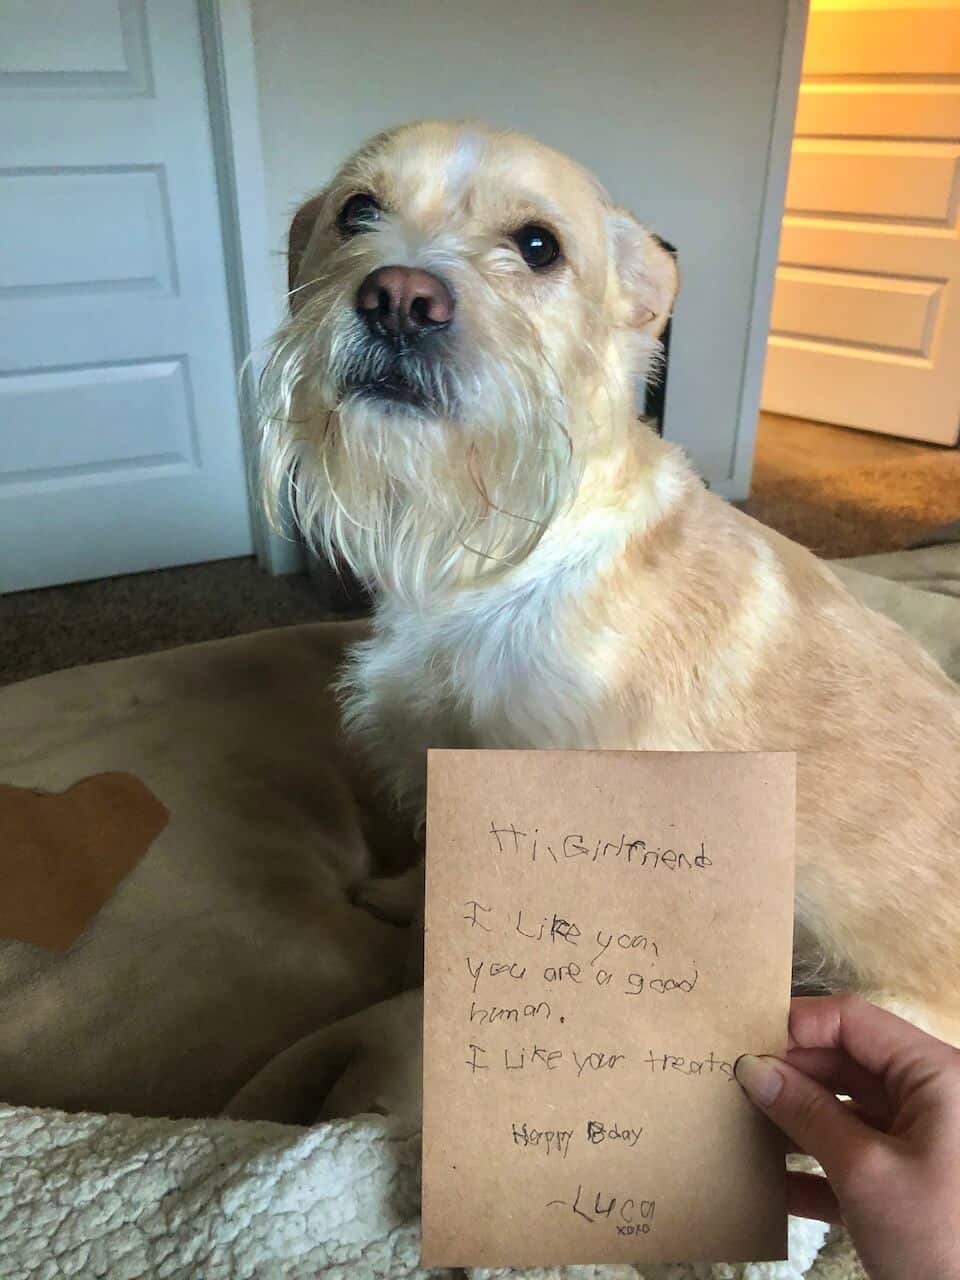 Hi, Girlfriend
I Like you,
you are a good
human.
I Like your treats
Happy Bday
-Luca
xoxo